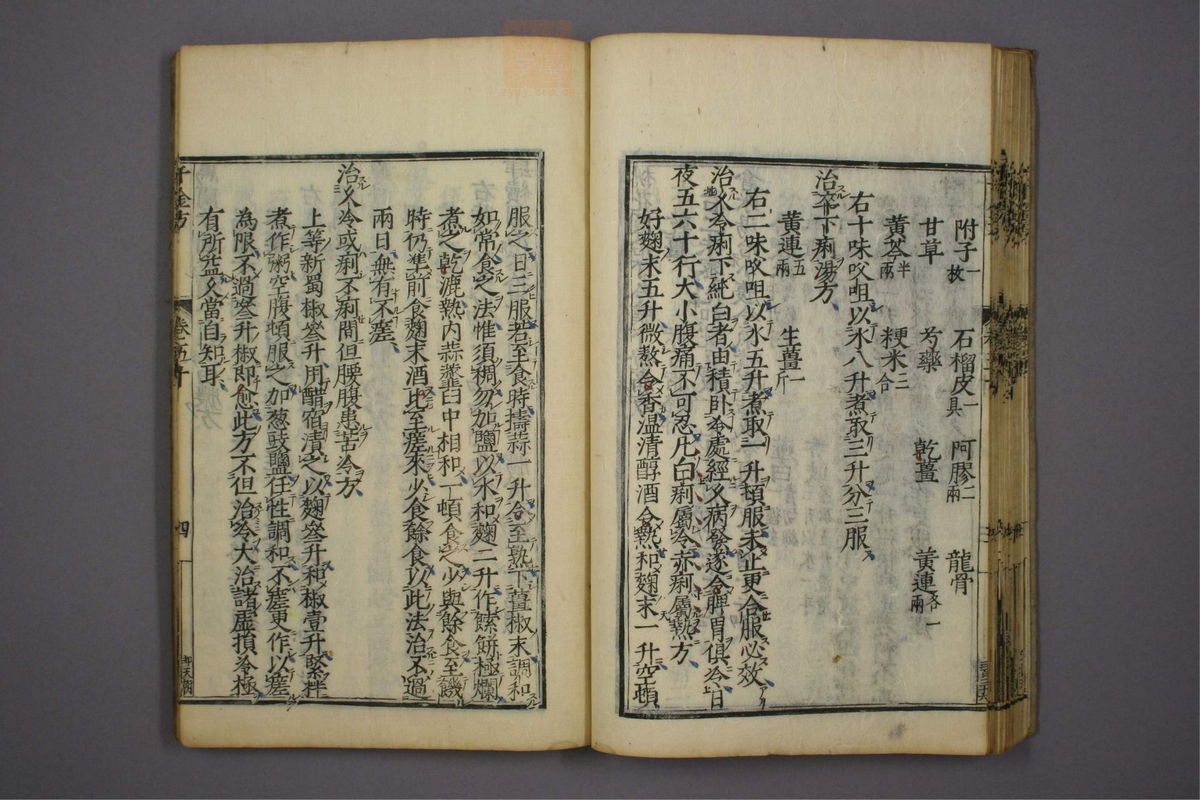 附子一枚 石榴皮一具 阿膠二兩 龍骨
甘草 芍藥 乾薑 黃連各一兩
黃芩半兩 粳米三合
右十味㕮咀以水八升煮取三升分三服
治卒下痢湯方
黃連五兩 生薑一斤
右二味㕮咀以水五升煮取一升頓服未止更合服必效
治久冷痢下純白者由積臥冷處經久病發遂令脾胃俱冷日
夜五六十行大小腹痛不可忍凡白痢屬冷赤痢屬熱方
好麴末五升微熬令香温清醇酒令熱和麴末一升空頓
服之日三服若至食時擣蒜一升令至熟下薑椒末調和
如常食之法惟須稠勿加鹽以水和麴二升作餻餅極爛
煮之乾漉熱內蒜虀臼中相和一頓食之少與餘食至饑
時仍準前食麴末酒比至瘥來少食餘食以此法治不過
兩日無有不瘥
治久冷或痢不痢間但腰腹患苦冷方
上等新蜀椒叄升用醋宿漬之以麴叄升和椒壹升緊拌
煮作粥空腹頓服之加葱豉鹽任性調和不瘥更作以瘥
為限不過叄升椒即愈此方不但治冷大治諸虛損冷極
有所益久當自知耳
千金方 卷五十 四